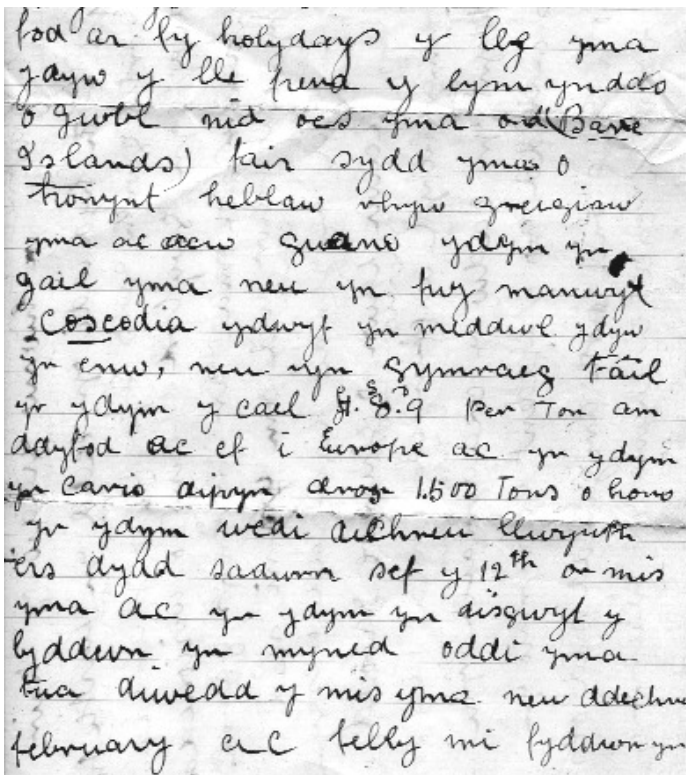 fod ar fy holydays y lle yma
ydyw y lle pend y bym ynddo
o gwbl nid oes yma ond (Bare
Islands) tair sydd yma o
honynt heblaw rhyw greigiau
yma ac acw guano ydym yn
gail yma neu yn fwy manwyl
Coscodia ydwyf yn meddwl ydyw
yr enw, neu yn gymraeg tail
yr ydym y cael per Ton am
ddyfod ac ef i Europe ac yr ydym
yn cario dipyn dros 1.500 Tons o hono
yr ydym wedi dechreu llwytho
ers dydd sadwrn sef y 12th or mis
yma ac yr ydym yn disgwyl y
byddwn yn myned oddi yma
tua diwedd y mis yma neu ddechra
february ac felly mi fyddwn yn